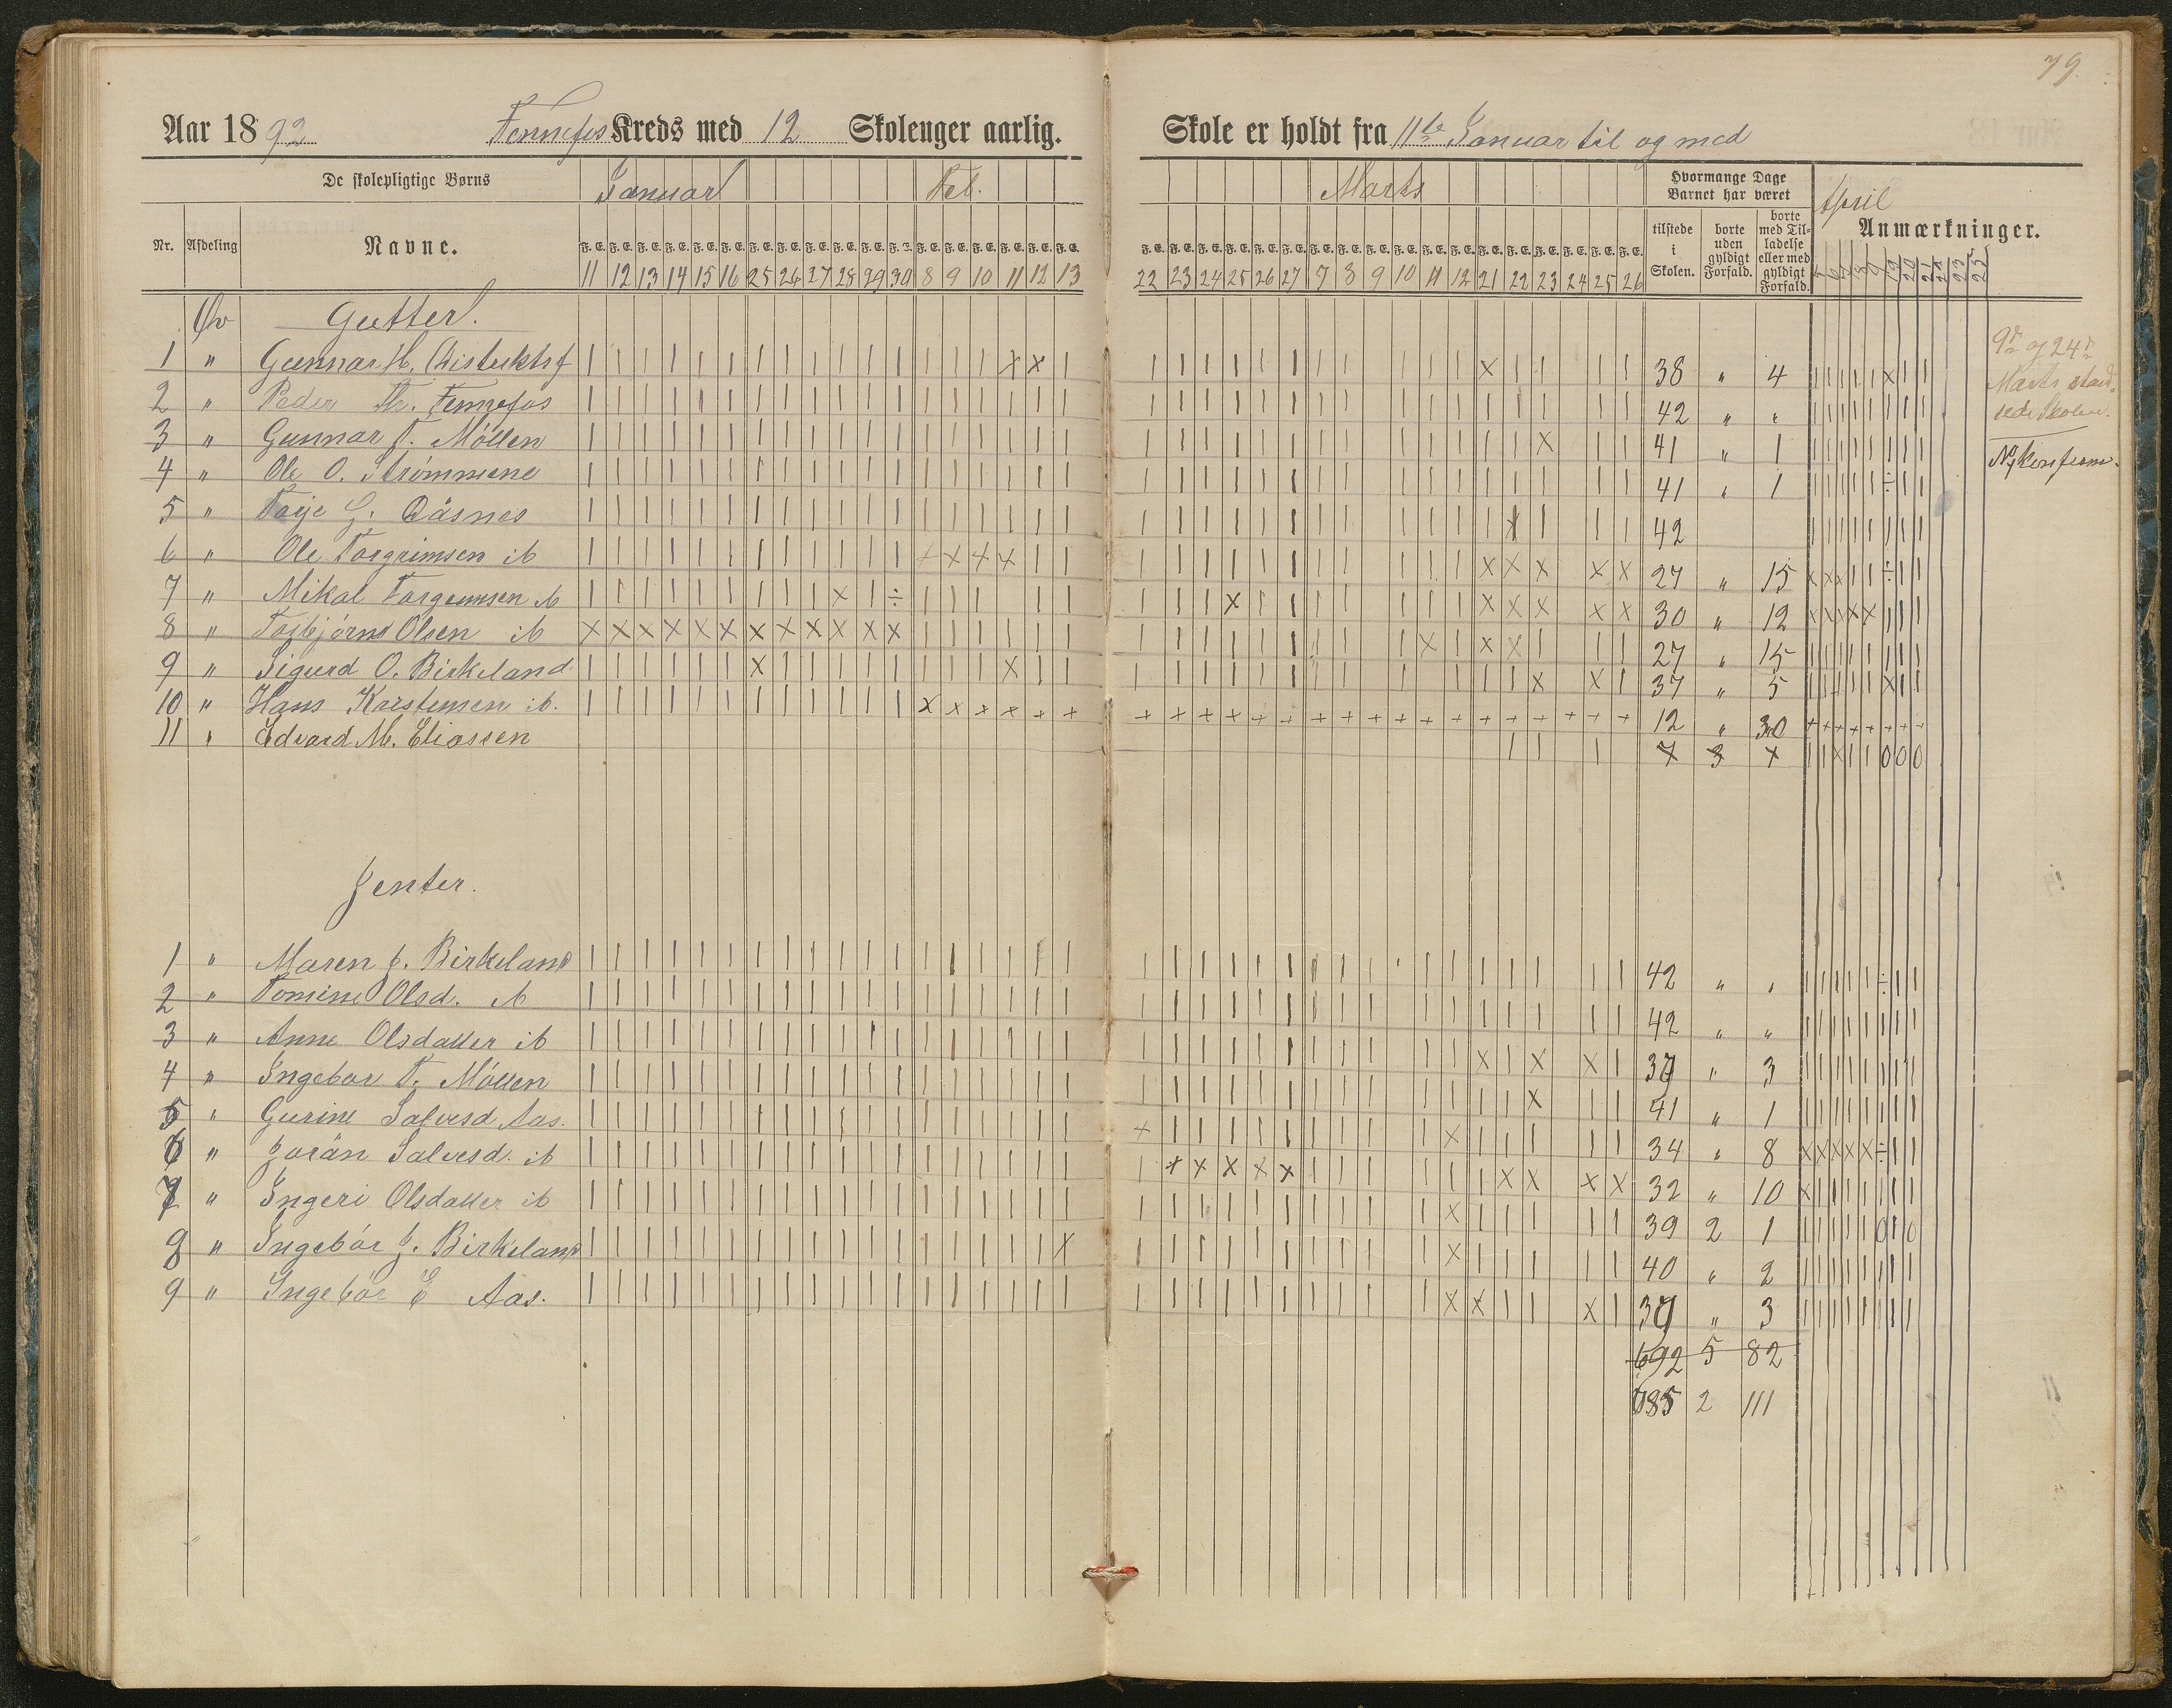 79.
Aar 1892 Fennefos Kreds med 12 Skoleuger aarlig.
Skole er holdt fra 11te Januar til og med
De skolepligtige Børns Januar Feb. Marts Hvormange Dage Barnet har været April
Nr. Afdeling Navne. F. E. F. E. F. E. F. E. F. E. F. E. F. E. F. E. F. E. F. E. F. E. F. E. F. E. F. E. F. E. F. E. F. E. F. E. tilstede i Skolen. borte uden gyldigt Forfald. borte med Tilladelse eller med gyldigt Forfald. Anmærkninger.
11 12 13 14 15 16 25 26 27 28 29 30 8 9 10 11 12 13 22 23 24 25 26 27 7 8 9 10 11 12 21 22 23 24 25 26
Øv Gutter.
1 " Gunnar H. 38 " 4
2 " Peder Th. Fennefos 42 " "
3 " Gunnar T. Möllen 41 " 1
4 " Ole O. Strömmene 41 " 1
5 " Taije G. Däsnes 42
6 " Ole Torgrimsen ib 27 " 15
7 " Mikal Torgrimsen ib 30 " 12
8 " Torbjörn Olsen ib 27 " 15
9 " Sigurd O. Birkeland 37 " 5
10 " Hans Kristensen ib. 12 " 30
11 " Edvard M. Eliassen 7 3 x
9de og 24de
Marts
Skolen.
Ny konfirm.
Jenter.
1 " Maren J. Birkeland 42 " "
2 " Tomine Olsd. ib 42 " "
3 " Anne Olsdatter ib 39 " 3
4 " Ingebor T. Möllen 41 " 1
5 " Gurine Salvesd. Aas. 34 " 8
6 " Jorän Salvesd. ib 32 " 10
7 " Ingeri Olsdatter ib 39 2 1
8 " Ingebör J. Birkeland 40 " 2
9 " Ingebör E Aas. 39 " 3
692 5 82
685 2 111